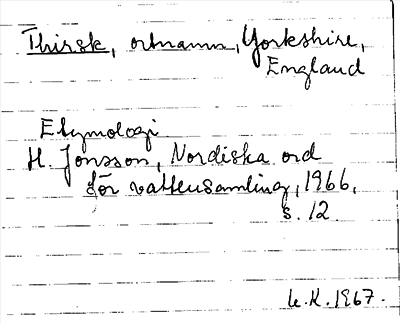 Thirsk, ortnamn, Yorkshire,
England
Etymologi
H. Jonsson, Nordiska ord
för vattensamling, 1966,
s. 12.
U.K. 1967.